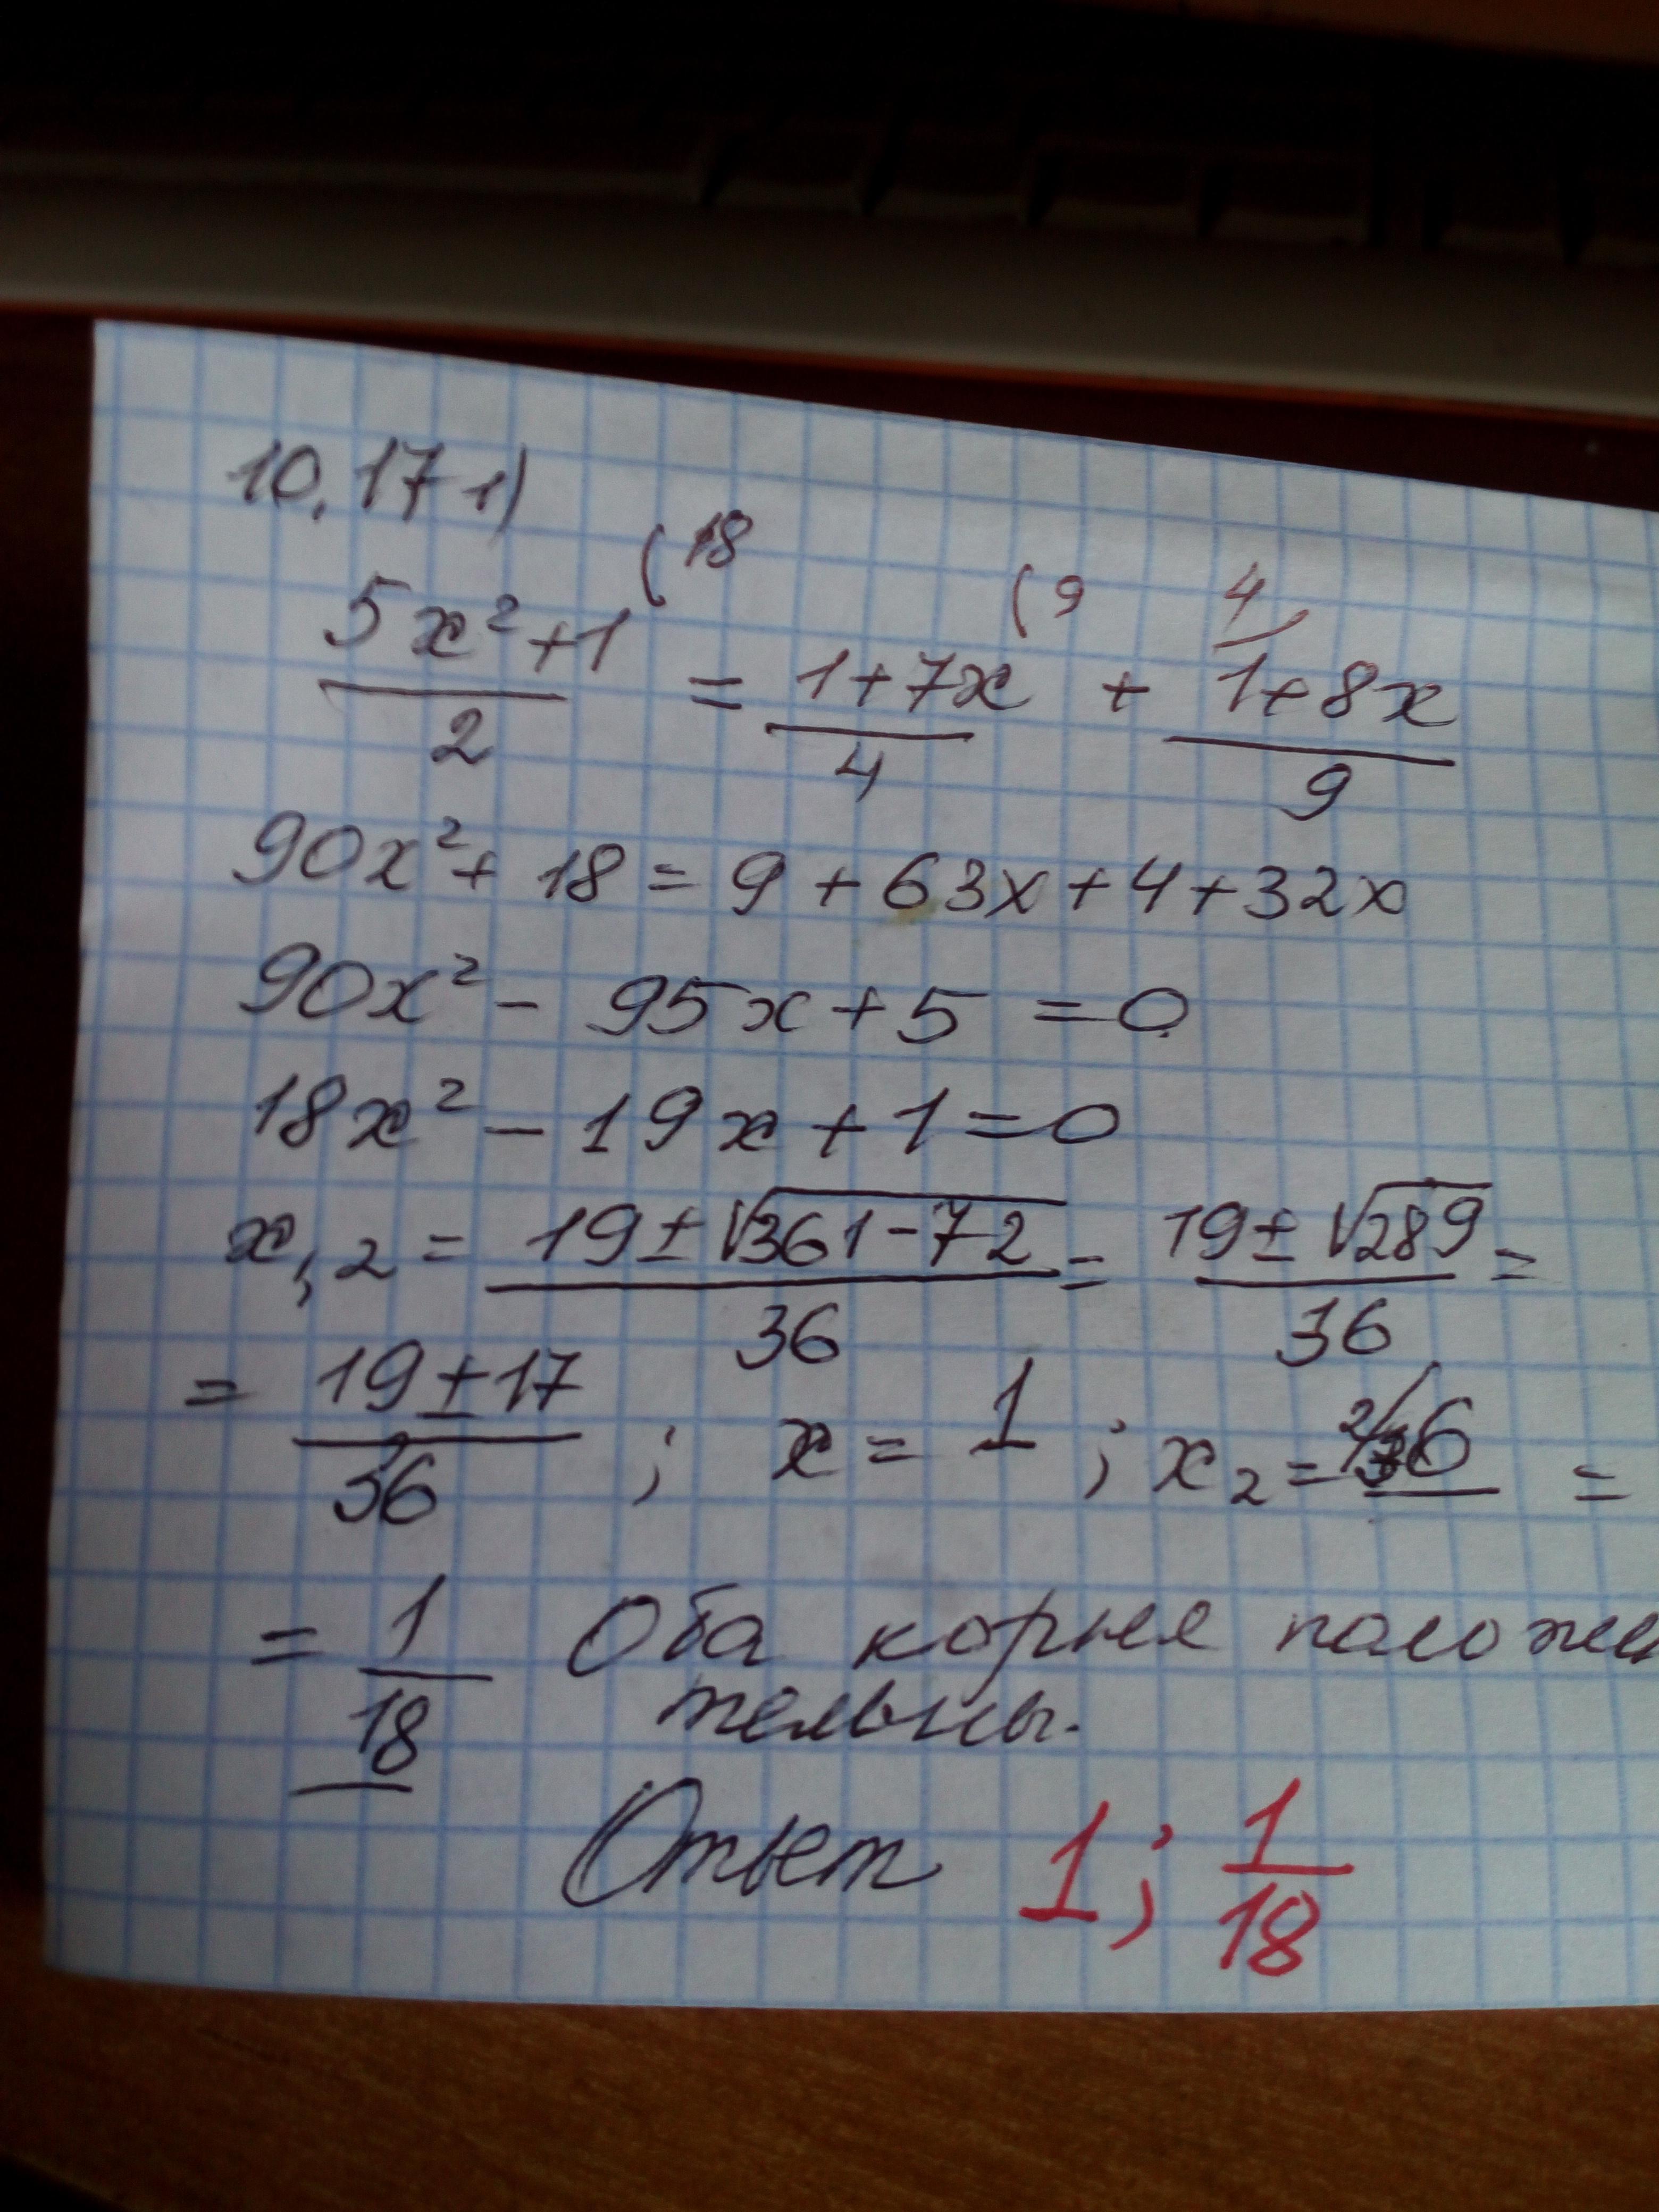 10.17 1)
(18 (9 4/
5x²+1/2 = 1+7x/4 + 1+8x/9
90x² + 18 = 9 + 63x + 4 + 32x
90x² - 95x + 5 = 0
18x² - 19x + 1 = 0
x1,2 = 19±√361-72/36 = 19±√289/36 =
= 19±17/36 ; x = 1 ; x2 = 2/36 =
= 1/18 Оба корня положи
тельны.
Ответ 1; 1/18